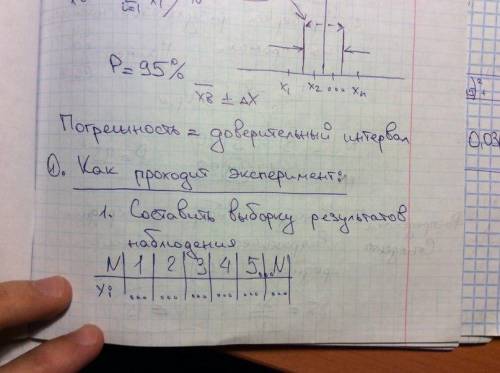 i=1
P = 95%
x₁ x₂ ... xₙ
x̄в ± Δx
Погрешность = доверительный интервал
①. Как проходит эксперимент:
1. Составить выборку результатов
наблюдения
N | 1 | 2 | 3 | 4 | 5...N |
... | ... | ... | ... | ... | ...
0,03